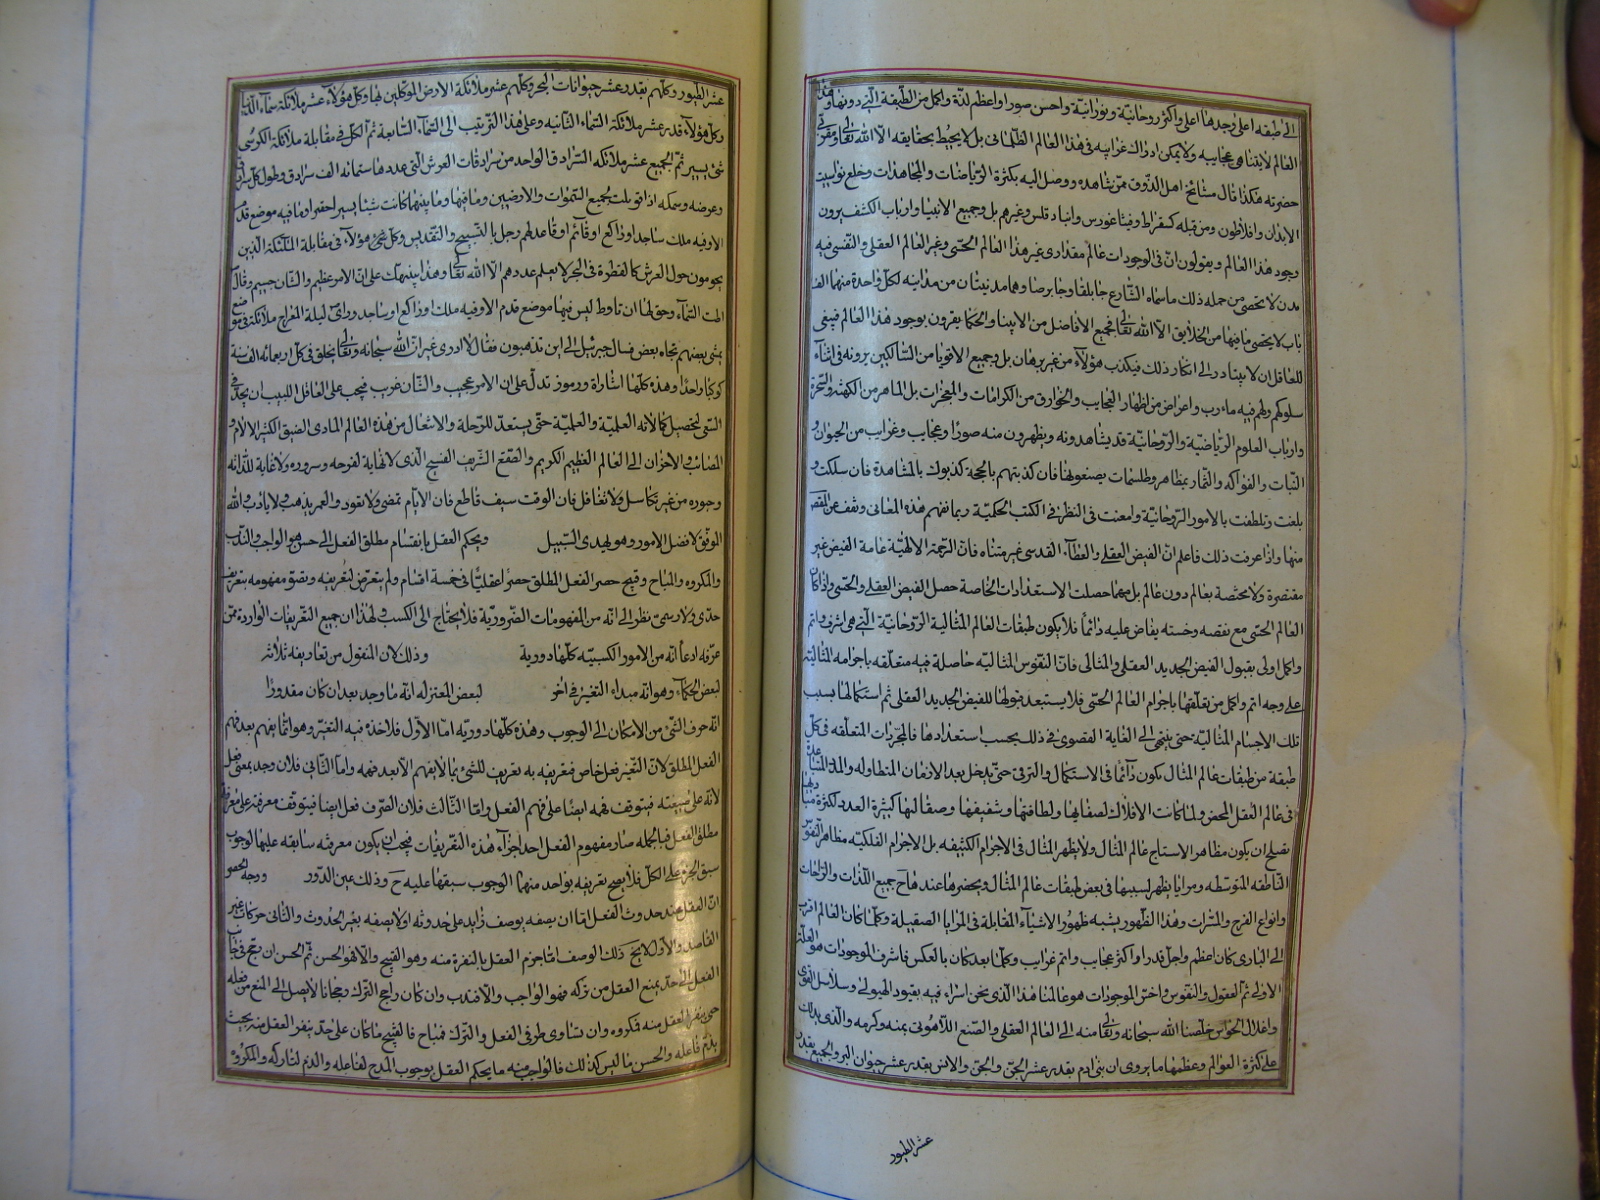 الى طبقه اعلى وجدها اعلى واكثر روحانيّة ونورانيّة واحسن صورا واعظم لذّة واكمل من الطبقة الّتي دونها وهذا
العالم لايتناهى عجايبه ولا يمكن ادراك غرايبه في هذا العالم الظلمانى بل لا يحيط بحقايقه الّا الله تعالى ومقرّبى
حضرته هكذا قال مشائخ اهل الذّوق ممّن شاهده ووصل اليه بكثرة الرّياضات والمجاهدات وخلع نواسيت
الابدان وافلاطون ومن قبله كسقراط وفيثاغورس وانبادقلس وغيرهم بل وجميع الانبيا وارباب الكشف يرون
وجود هذا العالم ويقولون انّ في الوجودات عالم مقدارى غير هذا العالم الحسّى وغير العالم العقلى والنّفسى فيه
مدن لا تحصى من جمله ذلك ماسماه الشّارع جابلقا وجابرصا وهما مدينتان من مداينه لكلّ واحدة منهما الف
باب لا يحصى ما فيها من الخلايق الّا الله تعالى فجميع الافاضل من الانبيا والحكما يقرون بوجود هذا العالم فينبغى
للعاقل ان لا يتبادر الى انكار ذلك فيكذب هؤلآء من غير برهان بل وجميع الاقويا من السّالكين يرونه في اثناء
سلوكهم ولهم فيه مارب واغراض من اظهار العجايب والخوارق من الكرامات والمعجزات بل الماهر من الكهنة والسّحرة
وارباب العلوم الرّياضيّة والرّوحانيّة قد يشاهدونه ويظهرون منه صورا وعجايب وغرايب من الحيوان
النّبات والفواكه والثّمار بمظاهر وطلسمات يصنعونها فان كذبتهم بالحجة كذبوك بالمشاهدة فان سلكت و
بلغت وتلطفت بالامور الرّوحانيّة وامعنت في النظر في الكتب الحكميّة ربما تفهم هذه المعانى وتقف عن القصّ
منها واذا عرفت ذلك فاعلم انّ الفيض العقلى والعطآء القدسى غير متناه فانّ الرّحمة الالهيّة عامة الفيض غير
مقتصرة ولا مختصة بعالم دون عالم بل مهما حصلت الاستعدادات الخاصة حصل الفيض العقلى والحسّى واذا كان
العالم الحسّى مع نقصه وخسته يفاض عليه دائماً فلا يكون طبقات العالم المثالية الرّوحانيّة الّتي هى اشرف واتم
واكمل اولى بقبول الفيض الجديد العقلى والمثالى فانّ النّفوس المثاليّة حاصلة فيه متعلّقه باجرامه المثاليّة
على وجه اتم واكمل من تعلّقها باجرام العالم الحسّى فلا يستبعد قبولها للفيض الجديد العقلى ثم استكمالها بسبب
تلك الاجسام المثاليّة حتى ينتهى الى الغاية القصوى في ذلك بحسب استعدادها فالمجرّدات المتعلّقه في كلّ
طبقة من طبقات عالم المثال يكون دآئما في الاستكمال والترقى حتى يدخل بعد الازمان المتطاوله والمدد المتباعدة
في عالم العقل المحض ولما كانت الافلاك لصفائها ولطافتها وشفيفها وصقالتها كبيرة العدد لكثرة مباديها
يصلح ان يكون مظاهر الاستاج عالم المثال ولا يظهر المثال في الاجرام الكثيفه بل الاجرام الفلكيّه مظاهر النّفوس
النّاطقه المتوسّطه ومرايا يظهر بسببها في بعض طبقات عالم المثال ويحضرها عندها ح جميع اللّذات والرّاحات
وانواع الفرح والمسّرات وهذا الظهور يشبه ظهور الاشيآء المقابلة في المرايا الصقيلة وكلّما كان العالم اقرب
الى البارى كان اعظم واجلّ قدرا واكثر عجايب واتم غرايب وكلّما بعد كان بالعكس فاشرف الموجودات هو العلّة
الاولى ثمّ العقول والنّفوس واخسّ الموجودات هو عالمنا هذا الّذى نحن اسراء فيه بقيود الهيولى وسلاسل القوى
واغلال الحواس خلّصنا الله سبحانه وتعالى منه الى العالم العقلى والصّنع اللّاهوتى بمنه وكرمه والّذى يدلّك
على كثرة العوالم وعظمها ما يروى ان بنى ادم بقدر عشر الجنّ والجنّ والانس بقدر عشر حيوان البر والجميع بقدر
عشر الطيور
عشر الطّيور وكلّهم بقدر عشر حيوانات البحر وكلّهم عشر ملائكة الارض الموكلين لها وكلّ هؤلآء عشر ملائكة سمآء الدّنيا
وكلّ هؤلآء قدر عشر ملائكة السّمآء الثانيه وعلى هذا الترتيب الى السّمآء السّابعة ثم الكلّ في مقابلة ملائكة الكرسى
شئ يسير ثمّ الجميع عشر ملائكه السّرادق الواحد من سرادقات العرش الّتى عددها ستمائه الف سرادق وطول كلّ سرادق
وعرضه وسمكه اذا قوبلت بجميع السّموات والارضين وما فيها وما بينهما كانت شيئا يسيرا حقيرا وما فيه موضع قدم
الا وفيه ملك ساجد او راكع او قائم او قاعد لهم زجل بالتسبيح والتقديس وكلّ هؤلآء في مقابلة الملئكة الّذين
يحومون حول العرش كالقطرة في البحر لا يعلم عددهم الّا الله تعالى وهذا ينبهك على انّ الامر عظيم والشّان جسيم وقال
اطت السّمآء وحقّ لها ان تاوط ليس فيها موضع قدم الا وفيه ملك وراكع او ساجد وراى ليلة المعراج ملائكة في موضع
يمشى بعضهم تجاه بعض فسال جبرئيل الى اين تذهبون فقال لا ادرى غير انّ الله سبحانه وتعالى يخلق في كلّ اربعمائه الف سنة
كوكبا واحدا وهذه كلّها اشارات ورموز تدلّ على ان الامر عجيب والشّان غريب فيجب على العاقل اللبيب ان يجدّ في
السّعى لتحصيل كمالاته العلميّة والعمليّة حتّى يستعدّ للرّحلة والاشتغال من هذه العالم المادى الضيق الكثير الالام و
المصائب والاحزان الى العالم العظيم الكريم والصقع الشّريف الفسيح الّذى لا نهاية لفرحه وسروره ولا غاية للذاته
وجوره من غير تكاسل ولا تغافل فان الوقت سيف قاطع فان الايّام تمضى ولا تعود والعمر يذهب ولا ياذب والله
الموفّق لافضل الامور وهو يهدى السّبيل ويحكم العقل بانقسام مطلق الفعل الى حسن هو الواجب والنّدب
والمكروه والمباح وقبيح حصر الفعل المطلق حصراً عقليّا في خمسة اقسام ولم يتعرّض لتعريفه وتصوّر مفهومه بتعريف
حدّى ولا رسمى نظر الى انّه من المفهومات الضّروريّة فلا يحتاج الى الكسب ولهذا ان جميع التعريفات الواردة ممّن
عرّفه ادعآ انّه من الامور الكسبيّه كلّها دورية وذلك لان المنقول من تعاريفه ثلاثه
لبعض الحكمآء وهو انّه مبداء التغيّر في اخر لبعض المعتزله انّه ما وجد بعد ان كان مقدوراً
انّه حرف الشّئ من الامكان الى الوجوب وهذه كلّها دوريّه امّا الاوّل فلاخذه فيه التغيّر وهو انّما يفهم بعد فهم
الفعل المطلق لانّ التّغيّر فعل خاص فتعريفه به تعريف للشئ بما لا يفهم الّا بعد فهمه وامّا الثّانى فلان وجد بمعنى فعل
لانّه على صيغته فيتوقف فهمه ايضا على فهم الفعل وامّا الثّالث فلان الصّرف فعل ايضا فيتوقف معرفته على معرفة
مطلق الفعل فبالجمله صار مفهوم الفعل احد اجزآء هذه التعريفات فيجب ان يكون معرفته سابقه عليها لوجوب
سبق الجزء على الكلّ فلا يصح تعريفه بواحد منها الوجوب سبقها عليه ح وذلك عين الدّور ووجه الحصر
انّ العقل عند حدوث الفعل امّا ان يصفه بوصف زايد على حدوثه او لا يصفه بغير الحدوث والثّانى حركات غير
القاصد والاوّل لا يخ ذلك الوصف امّا جزم العقل بالنفرة منه وهو القبيح والّا فهو الحسن ثم الحسن ان رجح في جانب
الفعل الى حدّ يمنع العقل من تركه فهو الواجب والّا فندب وان كان راجح الترك رجحانا لا يصل الى المنع من فعله
حتى ينفر العقل منه فمكروه وان تساوى طرفى الفعل والترك فمباح فالقبيح ما كان على حدّ ينفر العقل منه بحيث
يذمّ فاعله والحسن ما ليس كذلك فالواجب منه ما يحكم العقل بوجوب المدح لفاعله والذم لتاركه والمكروه